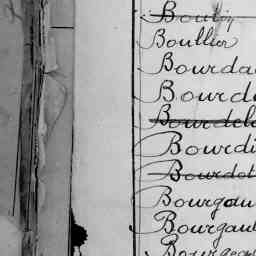 Boullier
Bourda
Bourd
Bourdel
Bourdi
Bourdot
Bourgau
Bourgaul
Bourgeo